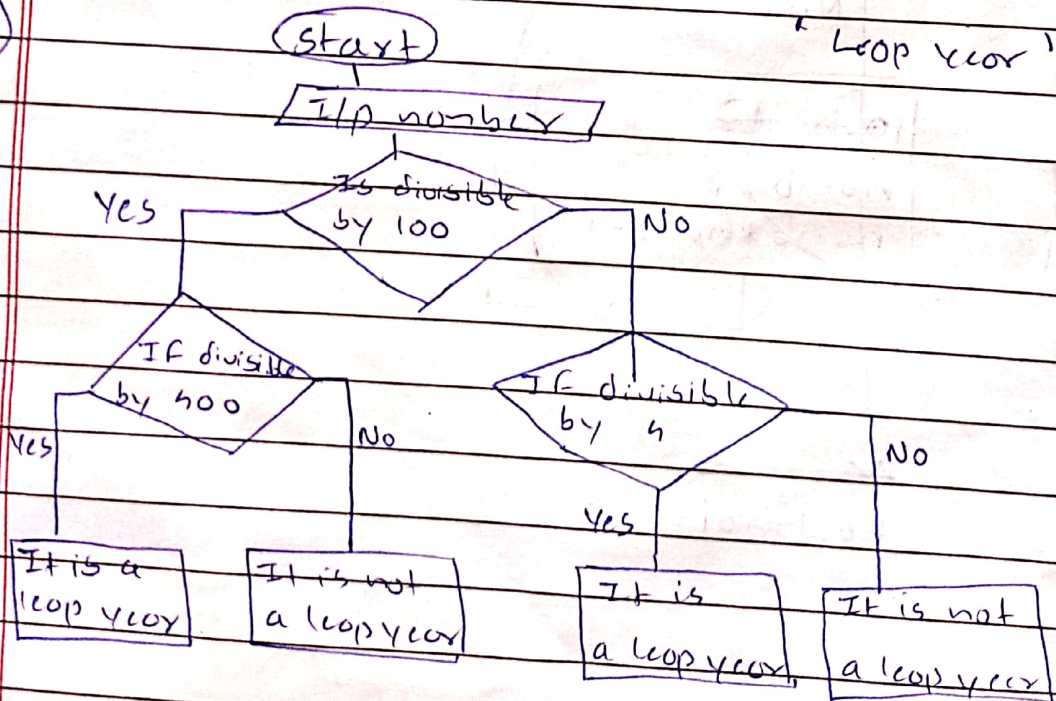 "Leap year"
Start
I/p number
Is divisible
by 100
Yes
No
If divisible
by 400
If divisible
by 4
Yes
No
Yes
No
It is a
leap year
It is not
a leap year
It is
a leap year
It is not
a leap year